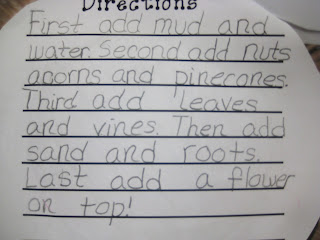 Directions
First add mud and
water. Second add nuts
acorns and pinecones.
Third add leaves
and vines. Then add
sand and roots.
Last add a flower
on top!